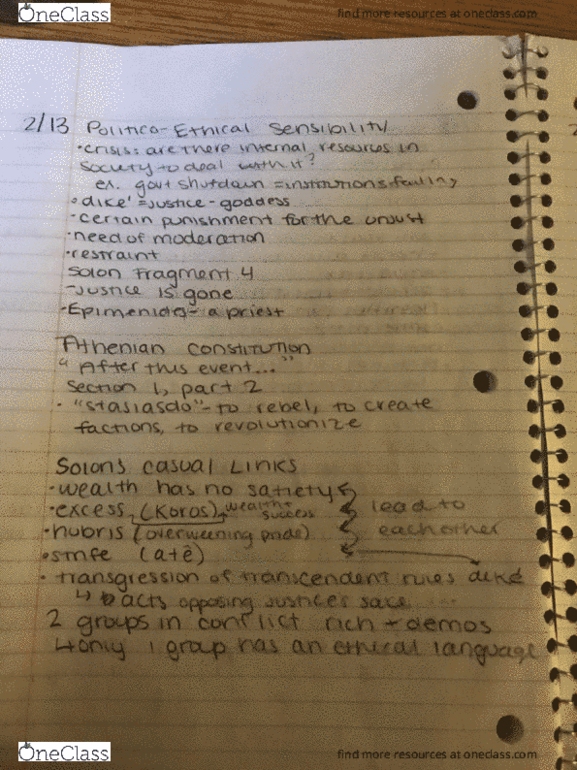 OneClass
find more resources at oneclass.com
2/13 Politico-Ethical Sensibility
•crisis: are there internal resources in
society to deal with it?
ex. govt shutdown = institutions failing
•dike' = justice - goddess
•certain punishment for the unjust
•need of moderation
•restraint
Solon Fragment 4
-Justice is gone
•Epimenida - a priest
Athenian Constitution
" After this event..."
Section 1, part 2
• "stasiasdo" - to rebel, to create
factions, to revolutionize
Solons casual Links
•wealth has no satiety
•excess, (Koros) wealth + success lead to
•hubris (overweening pride) each other
•strife (atē)
• transgression of transcendent rules diké
↳ acts opposing justices sake
2 groups in conflict rich + demos
↳only 1 group has an ethical language
OneClass
find more resources at oneclass.com